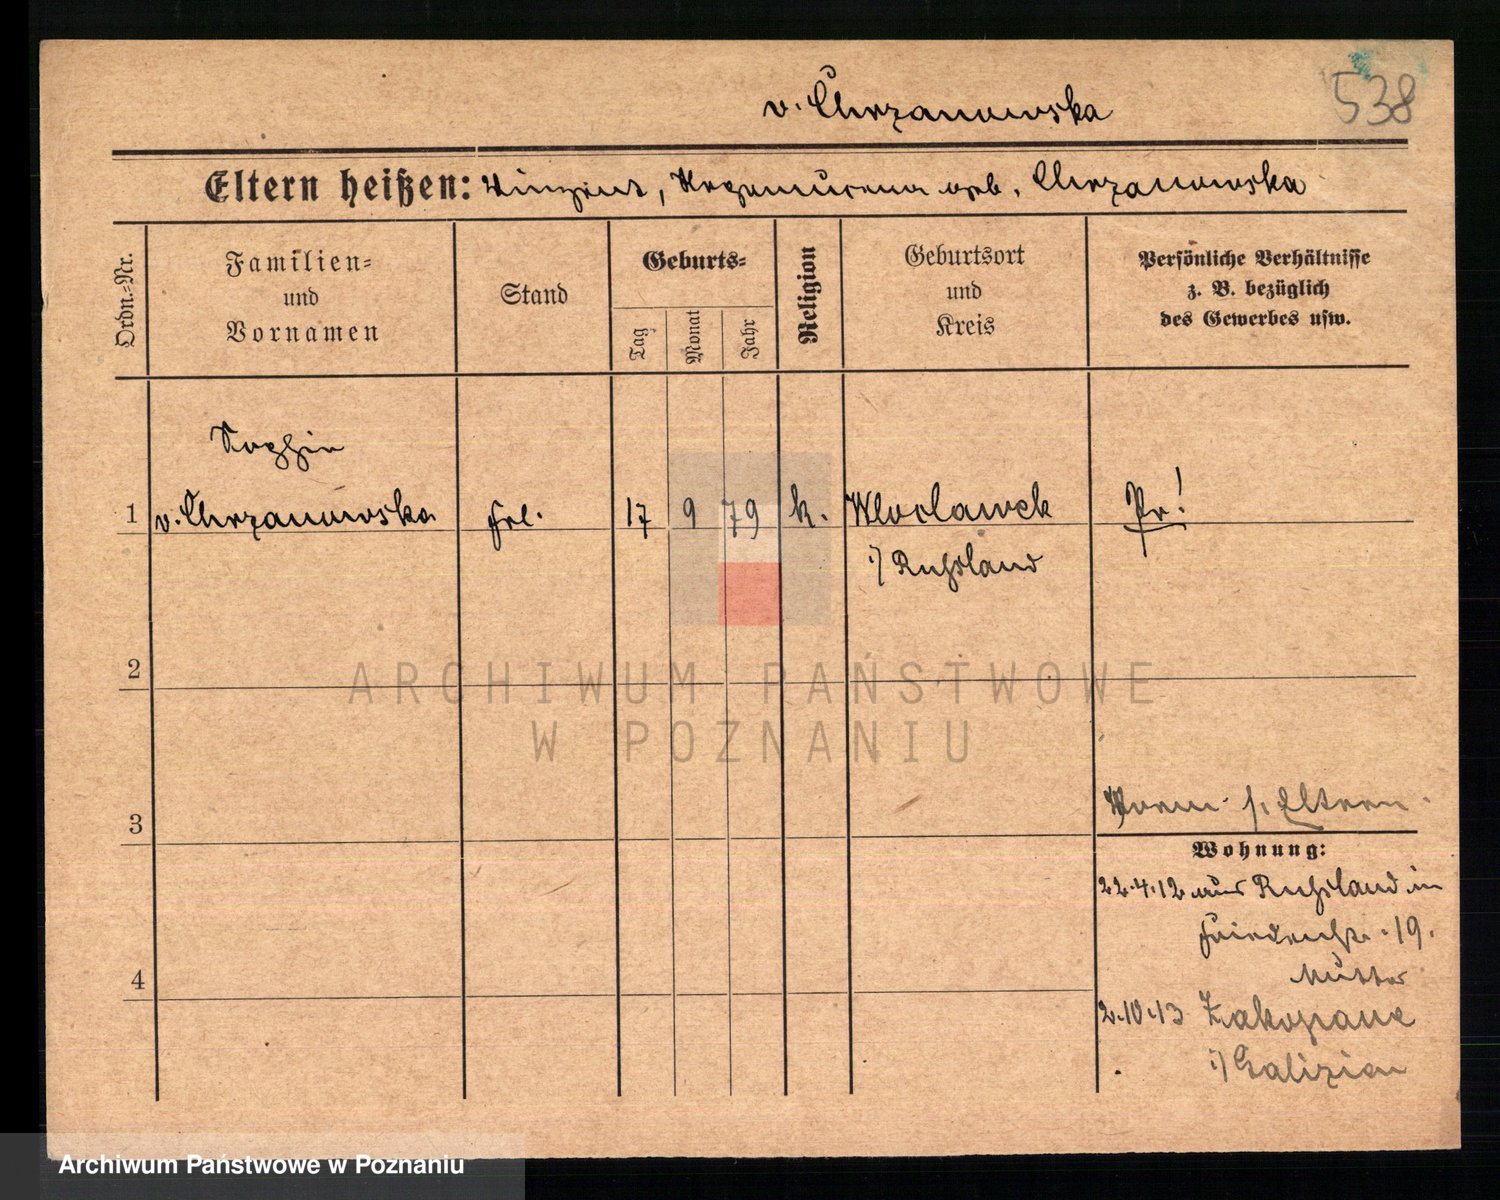 v. Chrzanowska
538
Eltern heißen: Vinzent, Nepomucena geb. Chrzanowska
Ordn.-Nr.
Familien-
und
Vornamen
Stand
Geburts-
Tag
Monat
Jahr
Religion
Geburtsort
und
Kreis
Persönliche Verhältnisse
z. B. bezüglich
des Gewerbes usw.
Sophie
1 v. Chrzanowska Frl. 17 9 79 k. Wloclawek Pr!
i/ Rußland
2
ARCHIWUM PAŃSTWOWE
W POZNANIU
3
Vorm. s. Eltern
Wohnung:
22.4.12 aus Rußland in
Friedenstr. 19.
Mutter
4
2.10.13 Zakopane
i/ Galizien
Archiwum Państwowe w Poznaniu